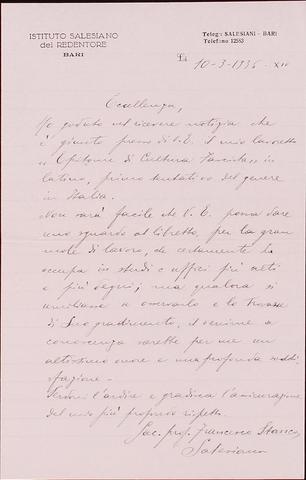 ISTITUTO SALESIANO
del REDENTORE
BARI
Telegr. SALESIANI - BARI
Telefono 12563
Lì 10-3-1936-XIV
Eccellenza,
Ho goduto nel ricevere notizia che
è giunto presso di V.E. il mio lavoretto
"Epitome di Cultura Fascista" in
latino, primo tentativo del genere
in Italia.
Non sarà facile che V. E. possa dare
uno sguardo al libretto, per la gran
mole di lavoro, che certamente La
occupa in studi e uffici più alti
e più degni; ma qualora si
umiliasse a osservarlo e lo trovasse
di Suo gradimento, il venirne a
conoscenza sarebbe per me un
altissimo onore e una profonda soddi-
sfazione.-
Perdoni l'ardire e gradisca l'assicurazione
del mio più profondo rispetto.
Sac. prof. Francesco
Salesiano